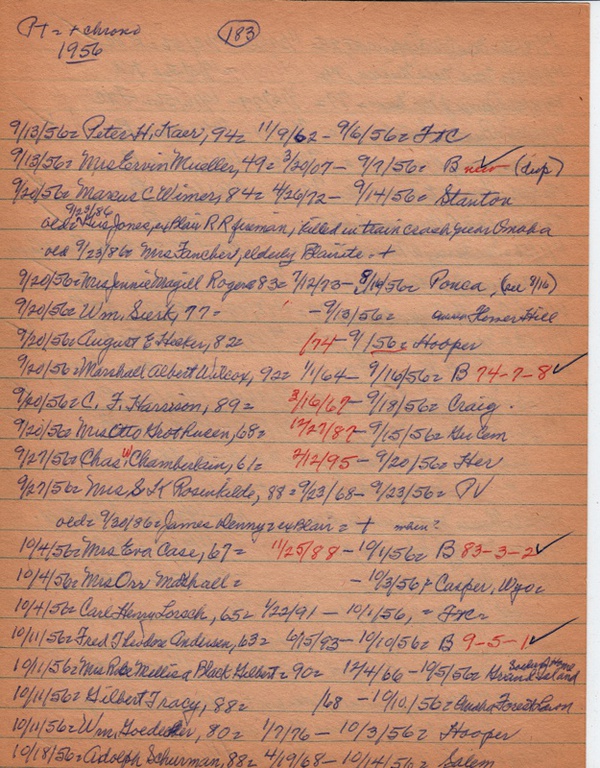 PT = + chrono 183
1956
9/13/56= Peter H. Kaer, 94= 11/9/62 - 9/6/56=
9/13/56= Mrs Ervin Mueller, 49= 3/20/07 - 9/7/56= B new (dup)
9/20/56= Marcus C Wimer, 84= 4/26/72 - 9/14/56= Stanton
9/23/86
old= Jones, ex Blair R R fireman, killed in train crash near Omaha
old 9/23/86= Mrs Fancher, elderly Blairite = +
9/20/56= Mrs Jennie Magill Rogers 83= 7/12/73 - 8/14/56= Ponca, (see 8/16)
9/20/56= Wm. Sierk, 77= - 9/13/56= Homer Hill
9/20/56= August E 82= /74 - 9/ /56= Hooper
9/20/56= Marshall Albert Wilcox, 92= 1/1/64 - 9/16/56= B 74-7-8
9/20/56= C. F. Harrison, 89= 3/16/67 - 9/18/56= Craig.
9/20/56= Mrs Otto 68= 12/27/87 - 9/15/56=
9/27/56= Chas W Chamberlain, 61= 2/12/95 - 9/20/56= Her
9/27/56= Mrs S K Rosenkilde, 88= 9/23/68 - 9/23/56= PV
old= 9/30/86= James Denny = ex Blair = + when?
10/4/56= Mrs Eva Case, 67= 11/25/88 - 10/1/56= B 83-3-2
10/4/56= Mrs Orr = - 10/3/56 + Casper, Wyo=
10/4/56= Carl Henry Lorsch, 65= 1/22/91 - 10/1/56, =
10/11/56= Fred Theodore Andersen, 63= 6/15/93 - 10/10/56= B 9-5-1
10/11/56= Mrs Millissa Black Gilbert = 90= 12/4/66 - 10/5/56= Soldiers Home Grand Island
10/11/56= Gilbert Tracy, 88= /68 - 10/10/56= Omaha Forest Lawn
10/11/56= Wm. Goedeker, 80= 1/7/76 - 10/3/56= Hooper
10/18/56= Adolph Schurman, 88= 4/19/68 - 10/14/56= Salem